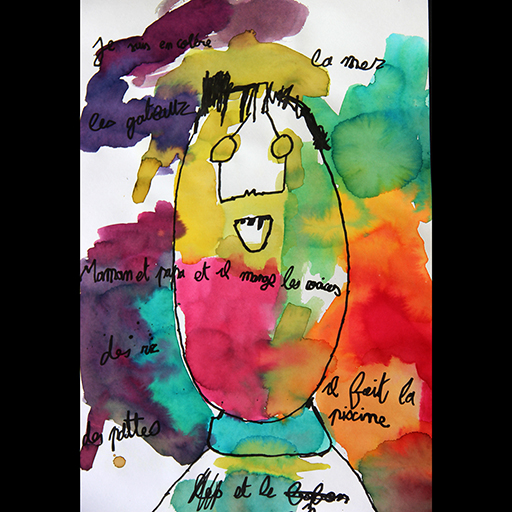 je suis en colère
la mer
les gateaux
Maman et papa et il mange les
des riz
il fait la
piscine
des pattes
et le